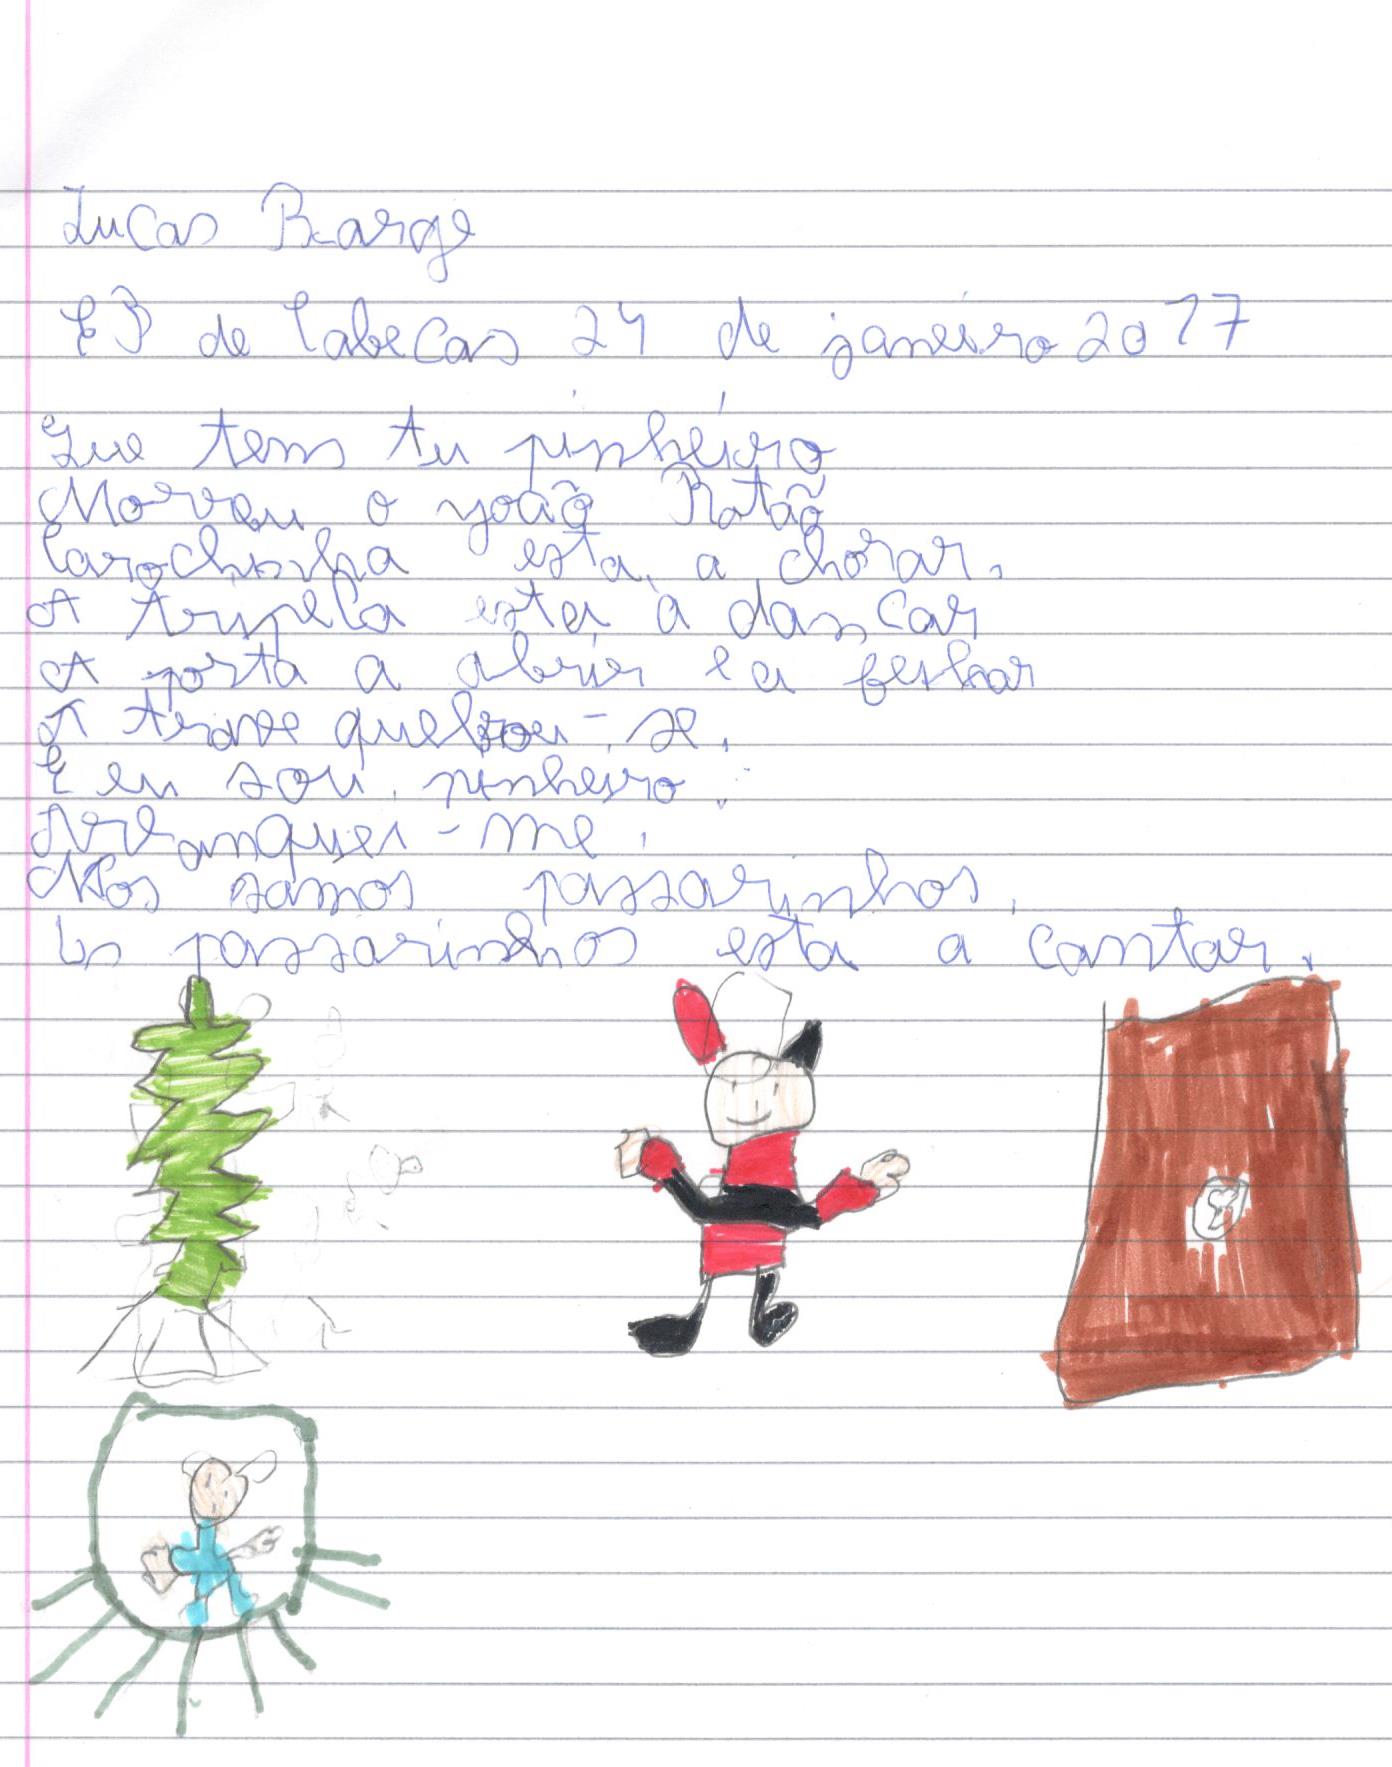 Lucas Barge
EB de Cabecas 24 de janeiro 2017
Que tem tu pinheiro
Morreu o joão Ratão
Carochinha esta a chorar.
A tripeca esta a dansar
A porta a abrir e a feshar
A trave quebrou-se.
E eu sou pinheiro.
Arranquei-me.
Nos samos passarinhos.
Os passarinhos esta a cantar.